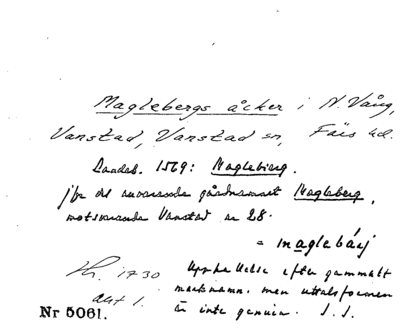 Maglebergs åcker i N. Vång,
Vanstad, Vanstad sn, Färs hd.
Landeb. 1569: Maglebierg.
jfr det nuvarande gårdnamnet Magleberg,
motsvarande Vanstad nr 28.
= maglebárj
Kr. 1730
akt 1.
Uppkallelse efter gammalt
marknamn. men uttalsformen
är inte genuin. I. I.
Nr 5061.